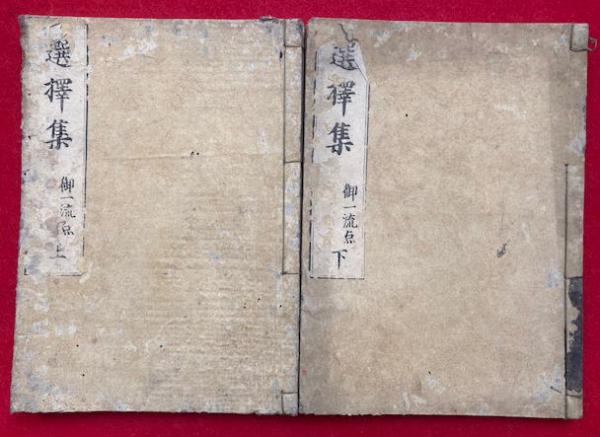 選擇集
御一流点
上
選擇集
御一流点
下